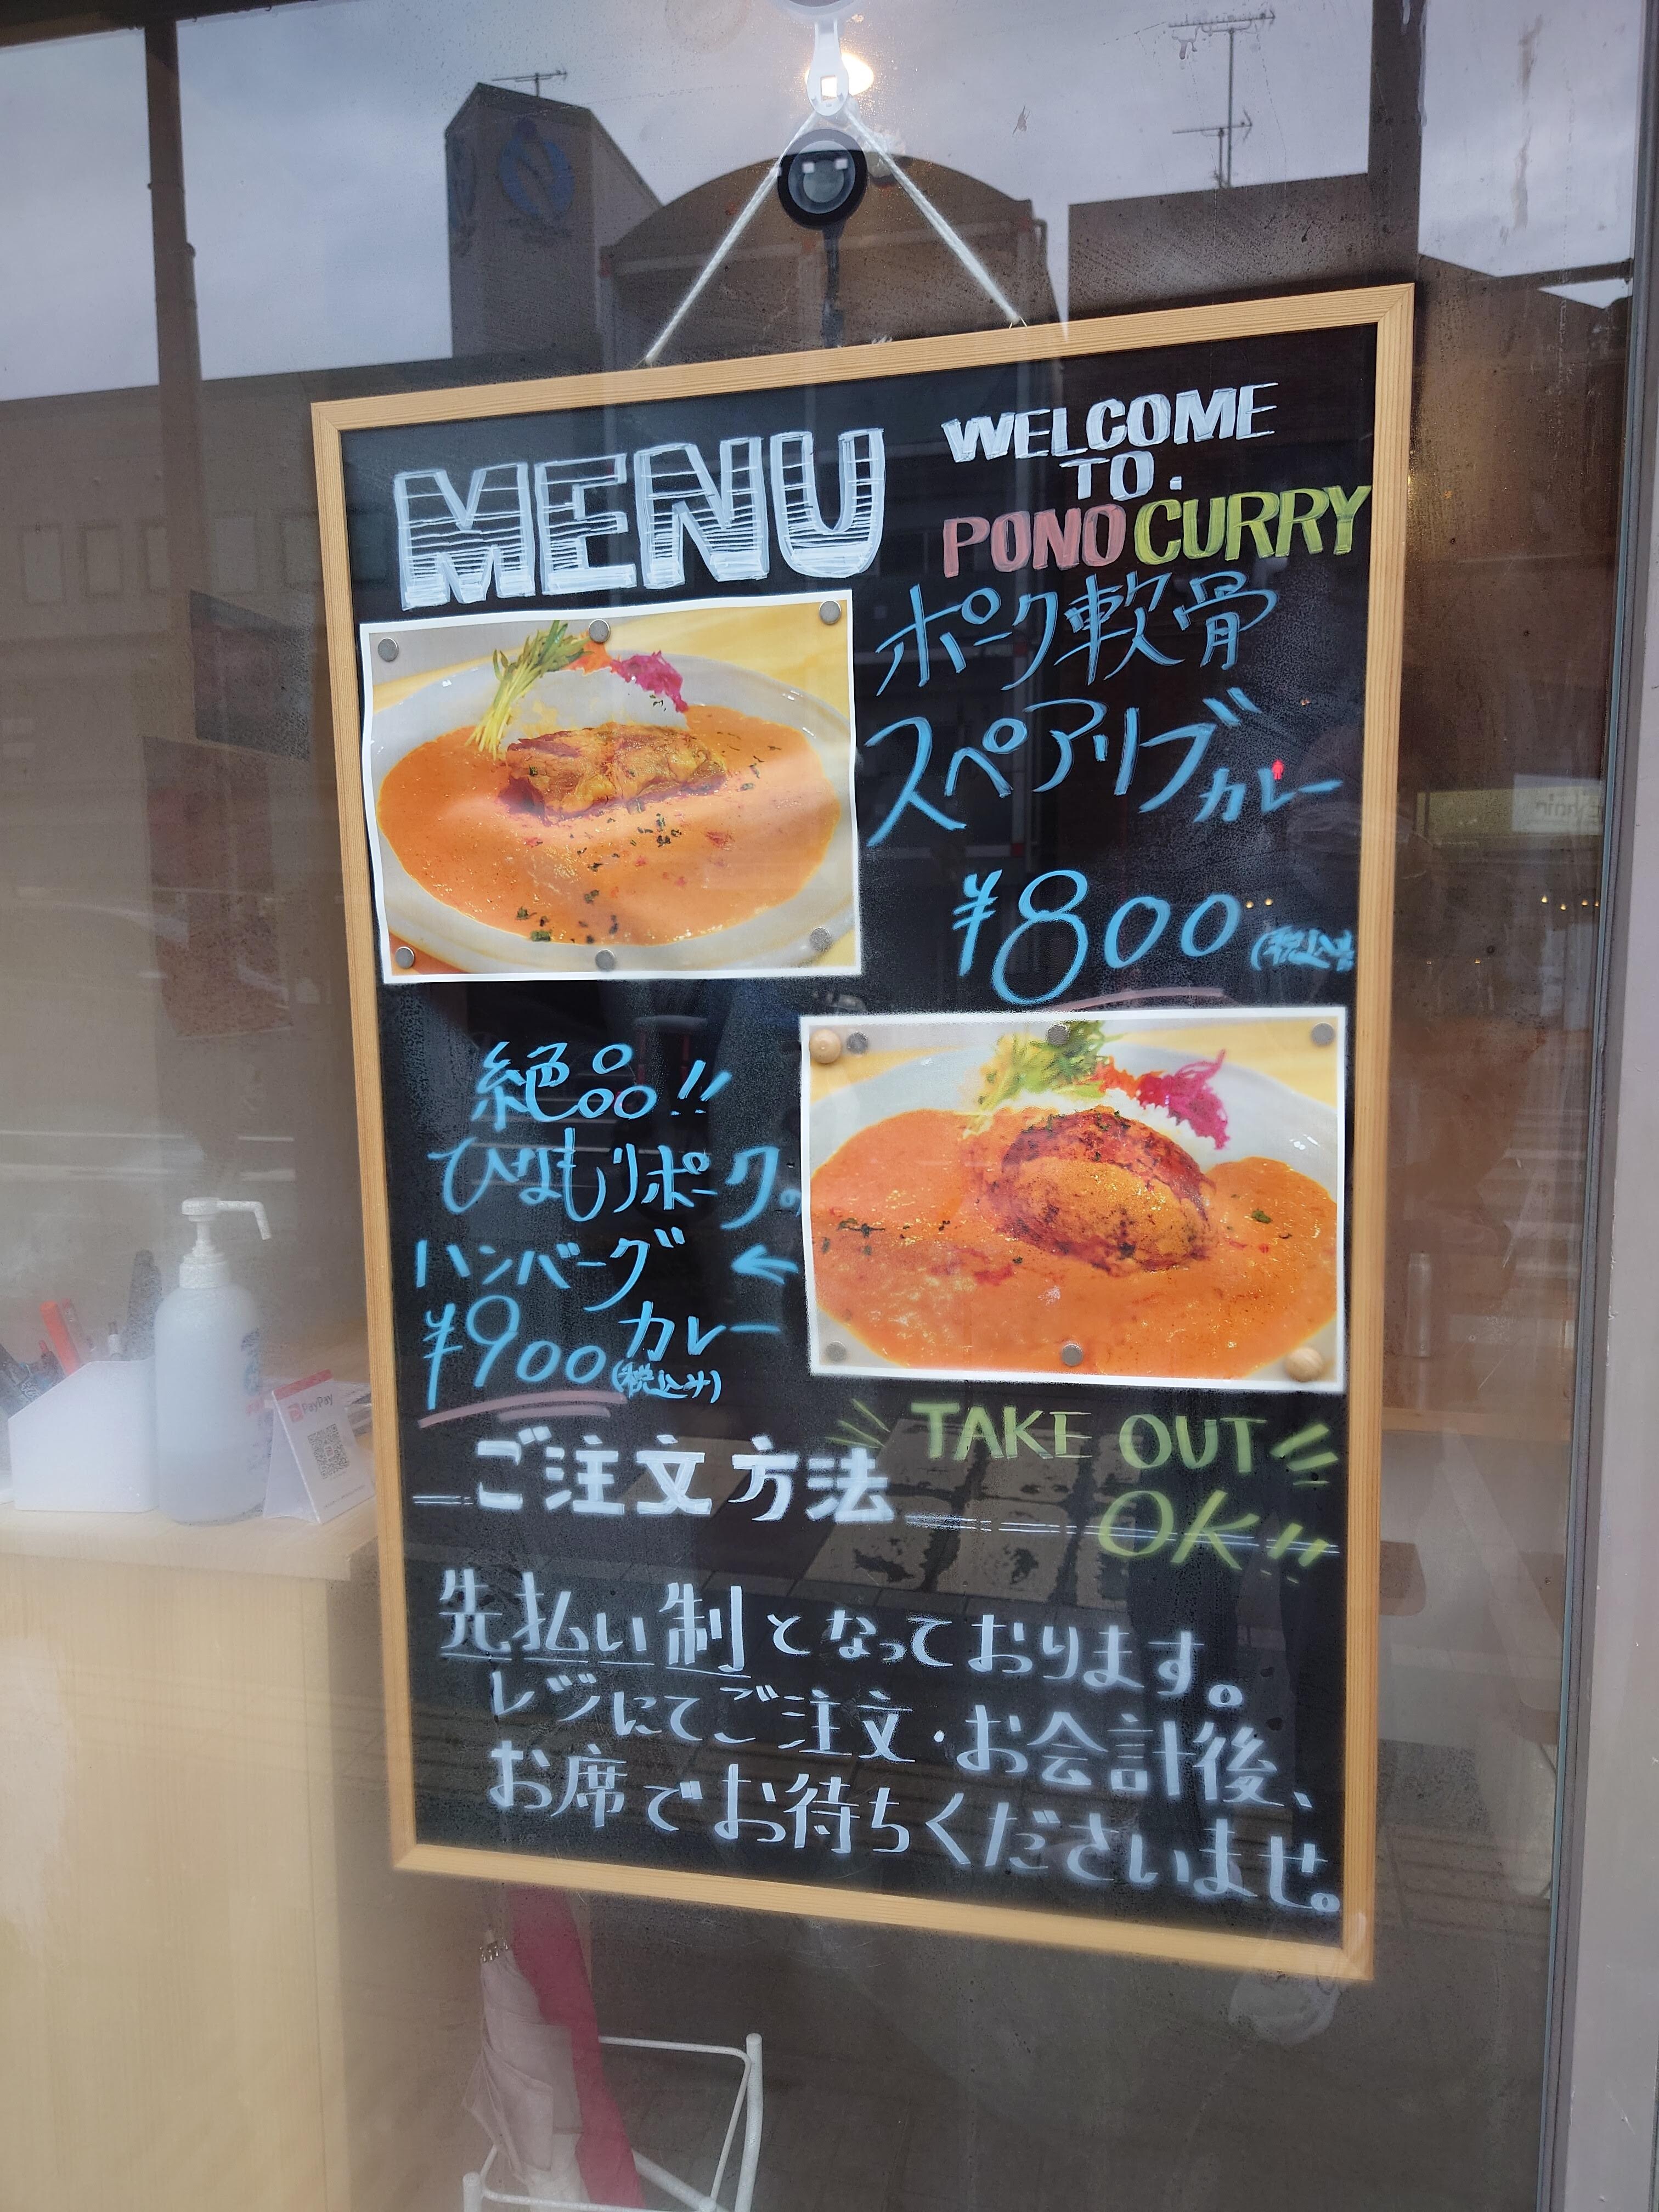 MENU
WELCOME
TO.
PONO CURRY
ポーク軟骨
スペアリブ
カレー
¥800
(税込
絶品!!
ひなもりポークの
ハンバーグ ←
カレー
¥900
(税込み)
TAKE OUT
OK!!
ご注文方法
先払い制となっております。
レジにてご注文・お会計後、
お席でお待ちくださいませ。
PayPay